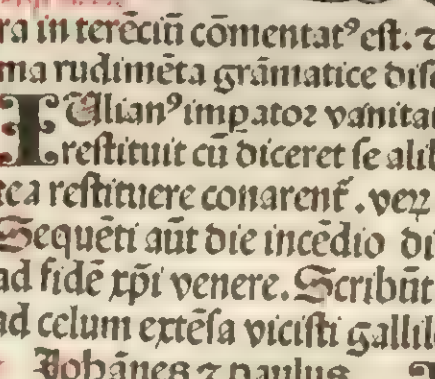 ra in terēciū cōmentatꝰ est. ⁊
ma rudimēta grāmatice disc
IUlianꝰ impator vanitat
restituit cū diceret se alib
tea restituere conarent᷑. veꝝ
Sequēti aūt die incēdio di
ad fidē xp̄i venere. Scribūt
ad celum extēsa vicisti gallile
Johānes ⁊ paulus